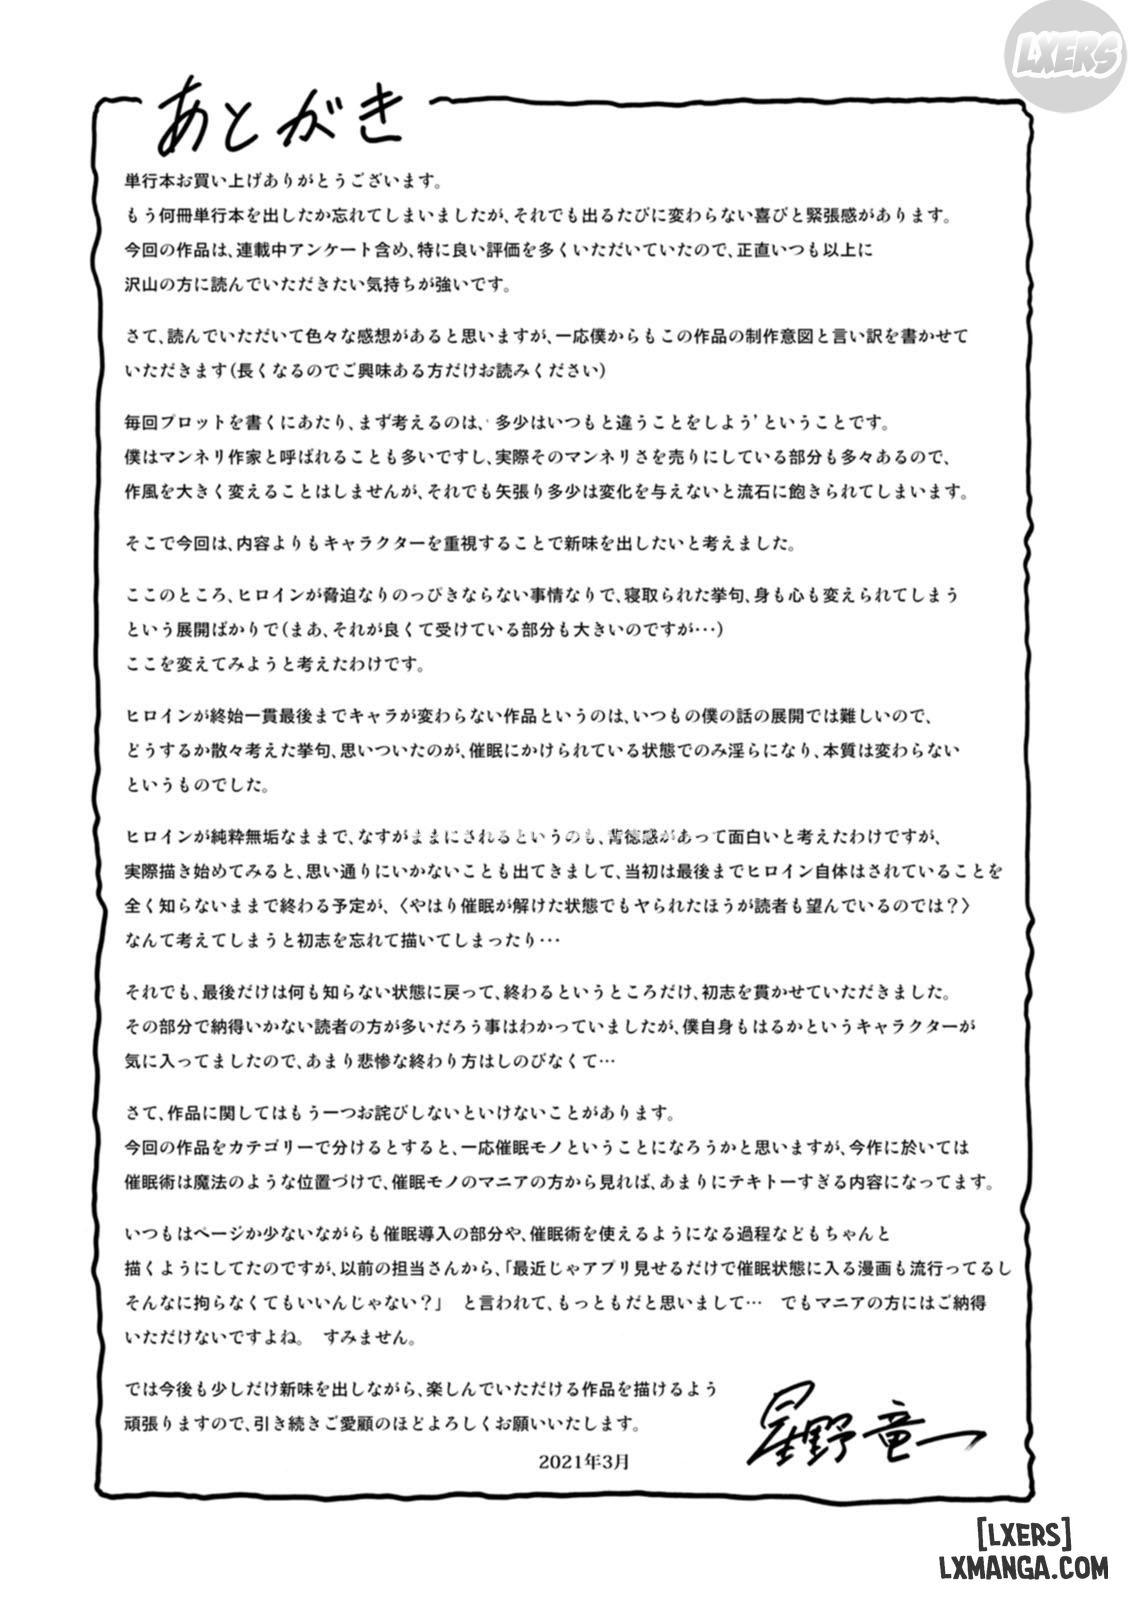 LXERS
あとがき
単行本お買い上げありがとうございます。
もう何冊単行本を出したか忘れてしまいましたが、それでも出るたびに変わらない喜びと緊張感があります。
今回の作品は、連載中アンケート含め、特に良い評価を多くいただいていたので、正直いつも以上に
沢山の方に読んでいただきたい気持ちが強いです。
さて、読んでいただいて色々な感想があると思いますが、一応僕からもこの作品の制作意図と言い訳を書かせて
いただきます(長くなるのでご興味ある方だけお読みください)
毎回プロットを書くにあたり、まず考えるのは、‘多少はいつもと違うことをしよう’ということです。
僕はマンネリ作家と呼ばれることも多いですし、実際そのマンネリさを売りにしている部分も多々あるので、
作風を大きく変えることはしませんが、それでも矢張り多少は変化を与えないと流石に飽きられてしまいます。
そこで今回は、内容よりもキャラクターを重視することで新味を出したいと考えました。
ここのところ、ヒロインが脅迫なりのっぴきならない事情なりで、寝取られた挙句、身も心も変えられてしまう
という展開ばかりで(まあ、それが良くて受けている部分も大きいのですが･･･)
ここを変えてみようと考えたわけです。
ヒロインが終始一貫最後までキャラが変わらない作品というのは、いつもの僕の話の展開では難しいので、
どうするか散々考えた挙句、思いついたのが、催眠にかけられている状態でのみ淫らになり、本質は変わらない
というものでした。
ヒロインが純粋無垢なままで、なすがままにされるというのも、背徳感があって面白いと考えたわけですが、
実際描き始めてみると、思い通りにいかないことも出てきまして、当初は最後までヒロイン自体はされていることを
全く知らないままで終わる予定が、〈やはり催眠が解けた状態でもヤられたほうが読者も望んでいるのでは？〉
なんて考えてしまうと初志を忘れて描いてしまったり･･･
それでも、最後だけは何も知らない状態に戻って、終わるというところだけ、初志を貫かせていただきました。
その部分で納得いかない読者の方が多いだろう事はわかっていましたが、僕自身もはるかというキャラクターが
気に入ってましたので、あまり悲惨な終わり方はしのびなくて…
さて、作品に関してはもう一つお詫びしないといけないことがあります。
今回の作品をカテゴリーで分けるとすると、一応催眠モノということになろうかと思いますが、今作に於いては
催眠術は魔法のような位置づけで、催眠モノのマニアの方から見れば、あまりにテキトーすぎる内容になってます。
いつもはページか少ないながらも催眠導入の部分や、催眠術を使えるようになる過程などもちゃんと
描くようにしてたのですが、以前の担当さんから、「最近じゃアプリ見せるだけで催眠状態に入る漫画も流行ってるし
そんなに拘らなくてもいいんじゃない？」　と言われて、もっともだと思いまして…　でもマニアの方にはご納得
いただけないですよね。　すみません。
では今後も少しだけ新味を出しながら、楽しんでいただける作品を描けるよう
頑張りますので、引き続きご愛顧のほどよろしくお願いいたします。
2021年3月
星野竜一
[LXERS]
LXMANGA.COM